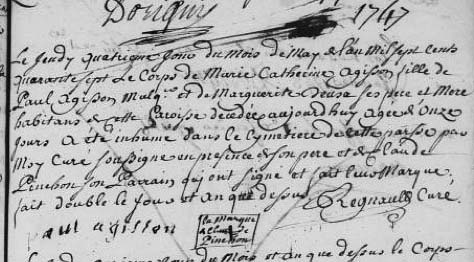 Dorigny
1747
Le Jeudy quatrieme Jour du Mois de May de L'an Mil sept cents
quarante sept Le Corps de Marie Catherine Agisson fille de
Paul Agisson Mulq. et de Marguerite ses pere et Mere
habitans de cette Paroisse decedée aujourdhuy Agée d'Onze
Jours A eté inhumé dans le Cymetiere de cette parse par
Moy Curé soussigné en presence de son pere et de Claude
Pinchon son Parrain qui ont signé et fait leurs Marque
fait double le Jour et an que dessus Regnault Curé
paul agisson
la Marque
de Claude
Pinchon
Mois et an que dessus le Corps